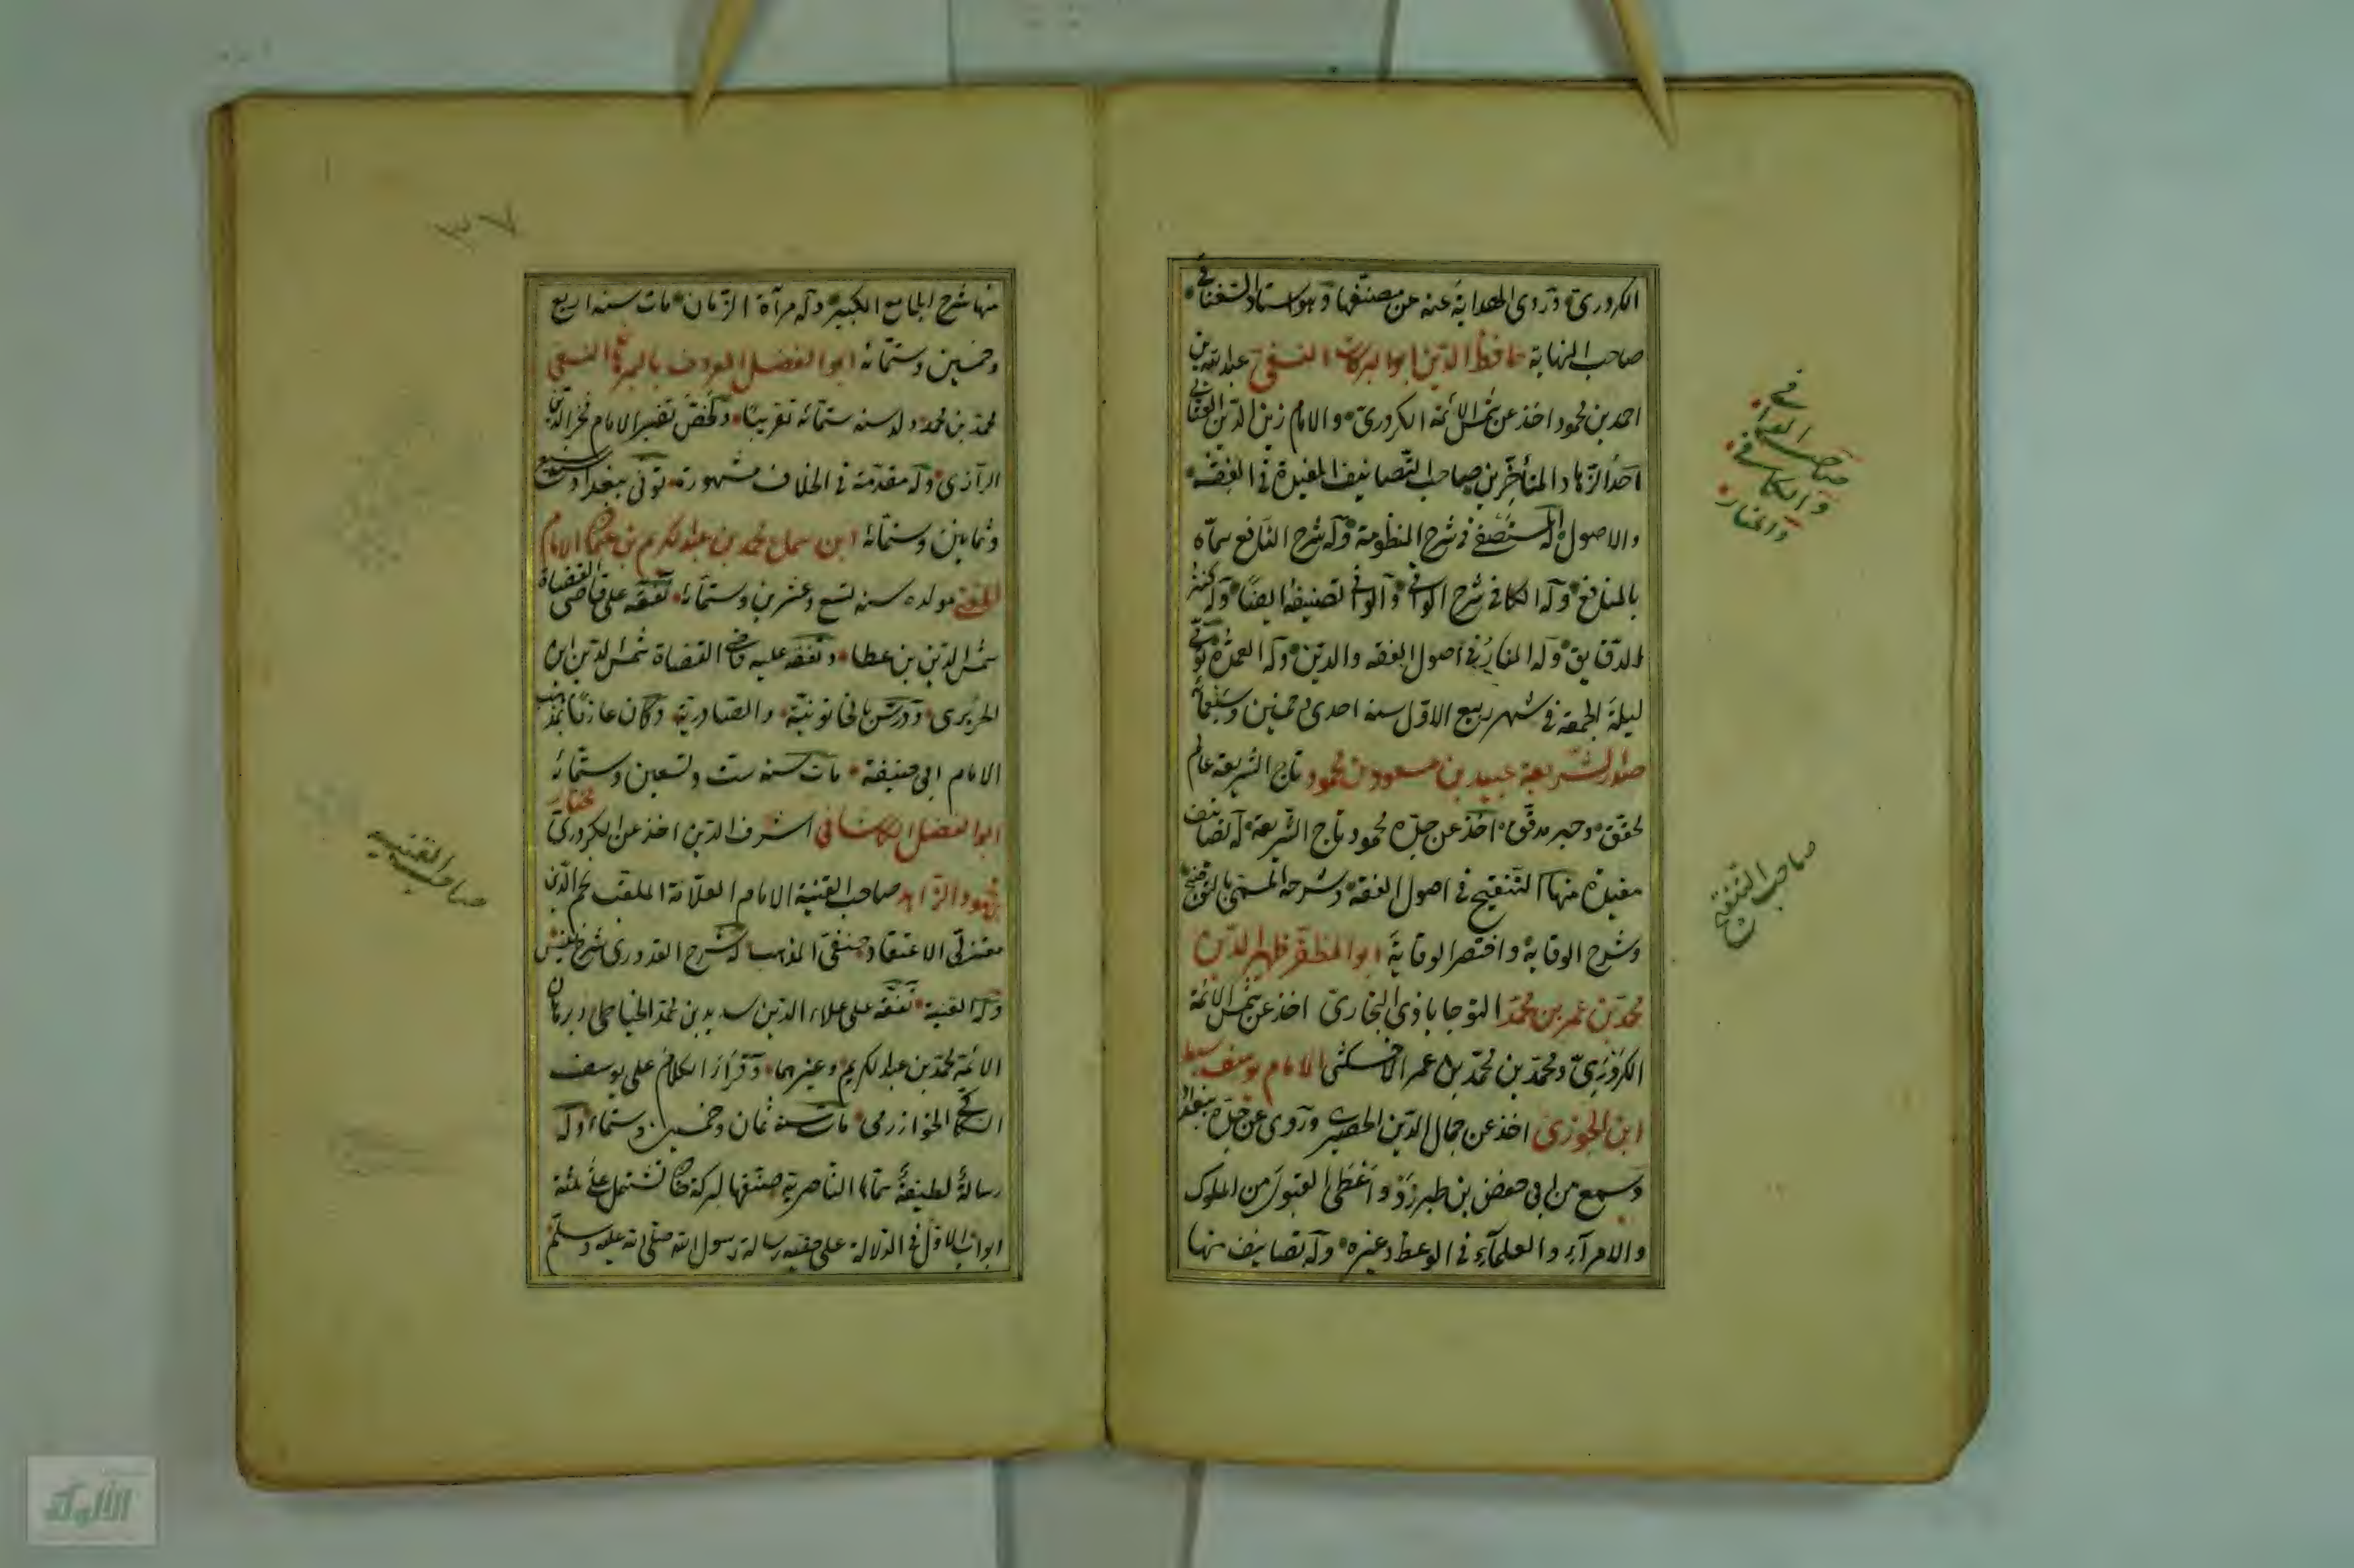 الكردرى وروى الهداية عنه عن مصنفها وهو استاد السغناقى
صاحب النهاية حافظ الدين ابو البركات النسفى عبد الله بن
احمد بن محمود اخذ عن شمس الائمة الكردرى والامام زين الدين العتابى
احد الزهاد المتأخرين صاحب التصانيف المفيدة فى الفقه
والاصول له المستصفى فى شرح المنظومة وله شرح النافع سماه
بالمنافع وله الكافى شرح الوافى والوافى تصنيفه ايضا وله كنز
الدقايق وله المنار فى اصول الفقه والدين وله العمدة توفى
ليلة الجمعة فى شهر ربيع الاول سنة احدى وخمسين وسبعمائة
صدر الشريعة عبيد بن مسعود بن محمود تاج الشريعة عالم
محقق وحبر مدقق اخذ عن جده محمود تاج الشريعة له تصانيف
مفيدة منها التنقيح فى اصول الفقه وشرحه المسمى بالتوضيح
وشرح الوقاية واختصر الوقاية ابو المظفر ظهير الدين
محمد بن عمر بن محمد النوجاباذى البخارى اخذ عن شمس الائمة
الكردرى ومحمد بن محمد بن عمر الاخسكثى الامام يوسف سبط
ابن الجوزى اخذ عن جمال الدين الحصيرى وروى عن جده ببغداد
وسمع من ابى حفص بن طبرزد واعطى القبول من الملوك
والامرآء والعلمآء فى الوعظ وغيره وله تصانيف منها
صاحب
والكافى
والمنار
صاحب التنقيح
٣٧
منها شرح الجامع الكبير وله مرآة الزمان مات سنة اربع
وخمسين وستمائة ابو الفضل المعروف بالبرهان النسفى
محمد بن محمد ولد سنة ستمائة تقريبا ولخص تفسير الامام فخر الدين
الرازى وله مقدمة فى الخلاف مشهورة توفى ببغداد سنة سبع
وثمانين وستمائة ابن سماع محمد بن عبد الكريم بن عثمان الامام
المفتى مولده سنة تسع وعشرين وستمائة تفقه على قاضى القضاة
شمس الدين بن عطا وتفقه عليه قاضى القضاة شمس الدين ابن
الحريرى ودرس بالخاتونية والصادرية وكان عارفا بمذهب
الامام ابى حنيفة مات سنة ست وتسعين وستمائة
ابو الفضل الكاشانى اشرف الدين اخذ عن الكردرى مختار
بن محمود الزاهد صاحب القنية الامام العلامة الملقب نجم الدين
معتزلى الاعتقاد حنفى المذهب له شرح القدورى شرح نفيس
وله القنية تفقه على علاء الدين سديد بن محمد الخياطى وبرهان
الائمة محمد بن عبد الكريم وغيرهما وقرأ الكلام على يوسف
السكاكى الخوارزمى مات سنة ثمان وخمسين وستمائة وله
رسالة لطيفة سماها الناصرية صنفها لبركة خان تشتمل على ثلثة
ابواب الاول فى الدلالة على حقية رسالة رسول الله صلى الله عليه وسلم
صاحب القنية
الألوكة